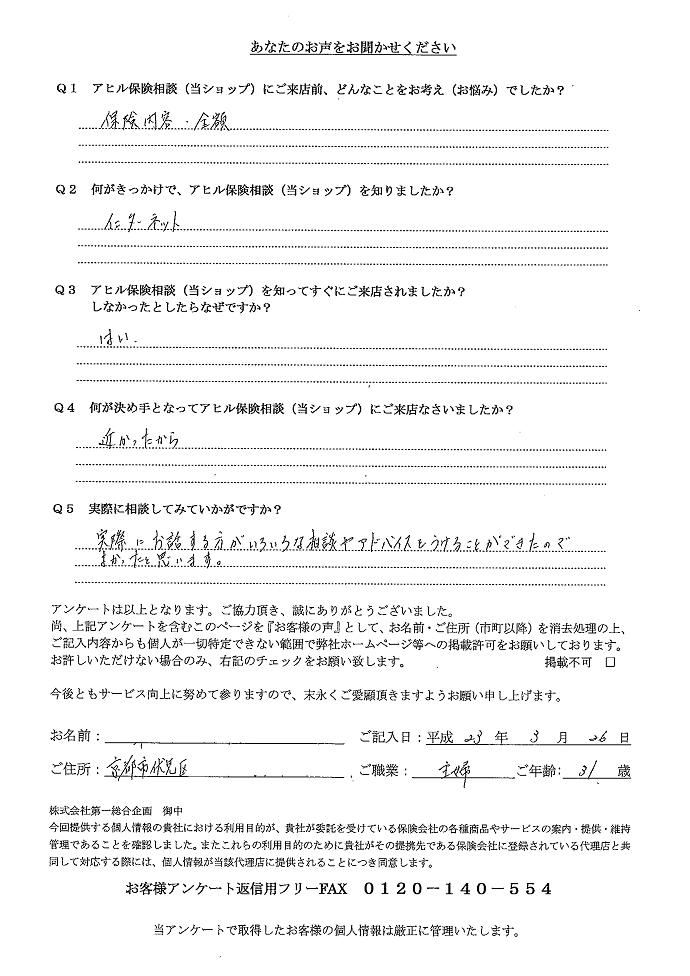 あなたのお声をお聞かせください
Q1 アヒル保険相談(当ショップ)にご来店前、どんなことをお考え(お悩み)でしたか?
保険内容・金額
Q2 何がきっかけで、アヒル保険相談(当ショップ)を知りましたか?
インターネット
Q3 アヒル保険相談(当ショップ)を知ってすぐにご来店されましたか?
しなかったとしたらなぜですか?
はい.
Q4 何が決め手となってアヒル保険相談(当ショップ)にご来店なさいましたか?
近かったから
Q5 実際に相談してみていかがですか?
実際にお話する方がいろいろな相談やアドバイスをうけることができたので
よかったと思います。
アンケートは以上となります。ご協力頂き、誠にありがとうございました。
尚、上記アンケートを含むこのページを『お客様の声』として、お名前・ご住所(市町以降)を消去処理の上、
ご記入内容からも個人が一切特定できない範囲で弊社ホームページ等への掲載許可をお願いしております。
お許しいただけない場合のみ、右記のチェックをお願い致します。 掲載不可 □
今後ともサービス向上に努めて参りますので、末永くご愛顧頂きますようお願い申し上げます。
お名前: ご記入日:平成 23 年 3 月 26 日
ご住所:京都市伏見区 ご職業: 主婦 ご年齢: 31 歳
株式会社第一総合企画 御中
今回提供する個人情報の貴社における利用目的が、貴社が委託を受けている保険会社の各種商品やサービスの案内・提供・維持
管理であることを確認しました。またこれらの利用目的のために貴社がその提携先である保険会社に登録されている代理店と共
同して対応する際には、個人情報が当該代理店に提供されることにつき同意します。
お客様アンケート返信用フリーFAX 0120-140-554
当アンケートで取得したお客様の個人情報は厳正に管理いたします。